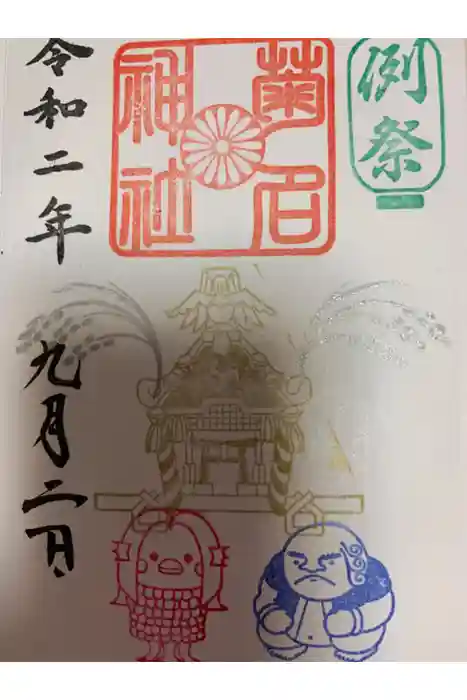 例祭
菊名
神社
令和二年
九月二日